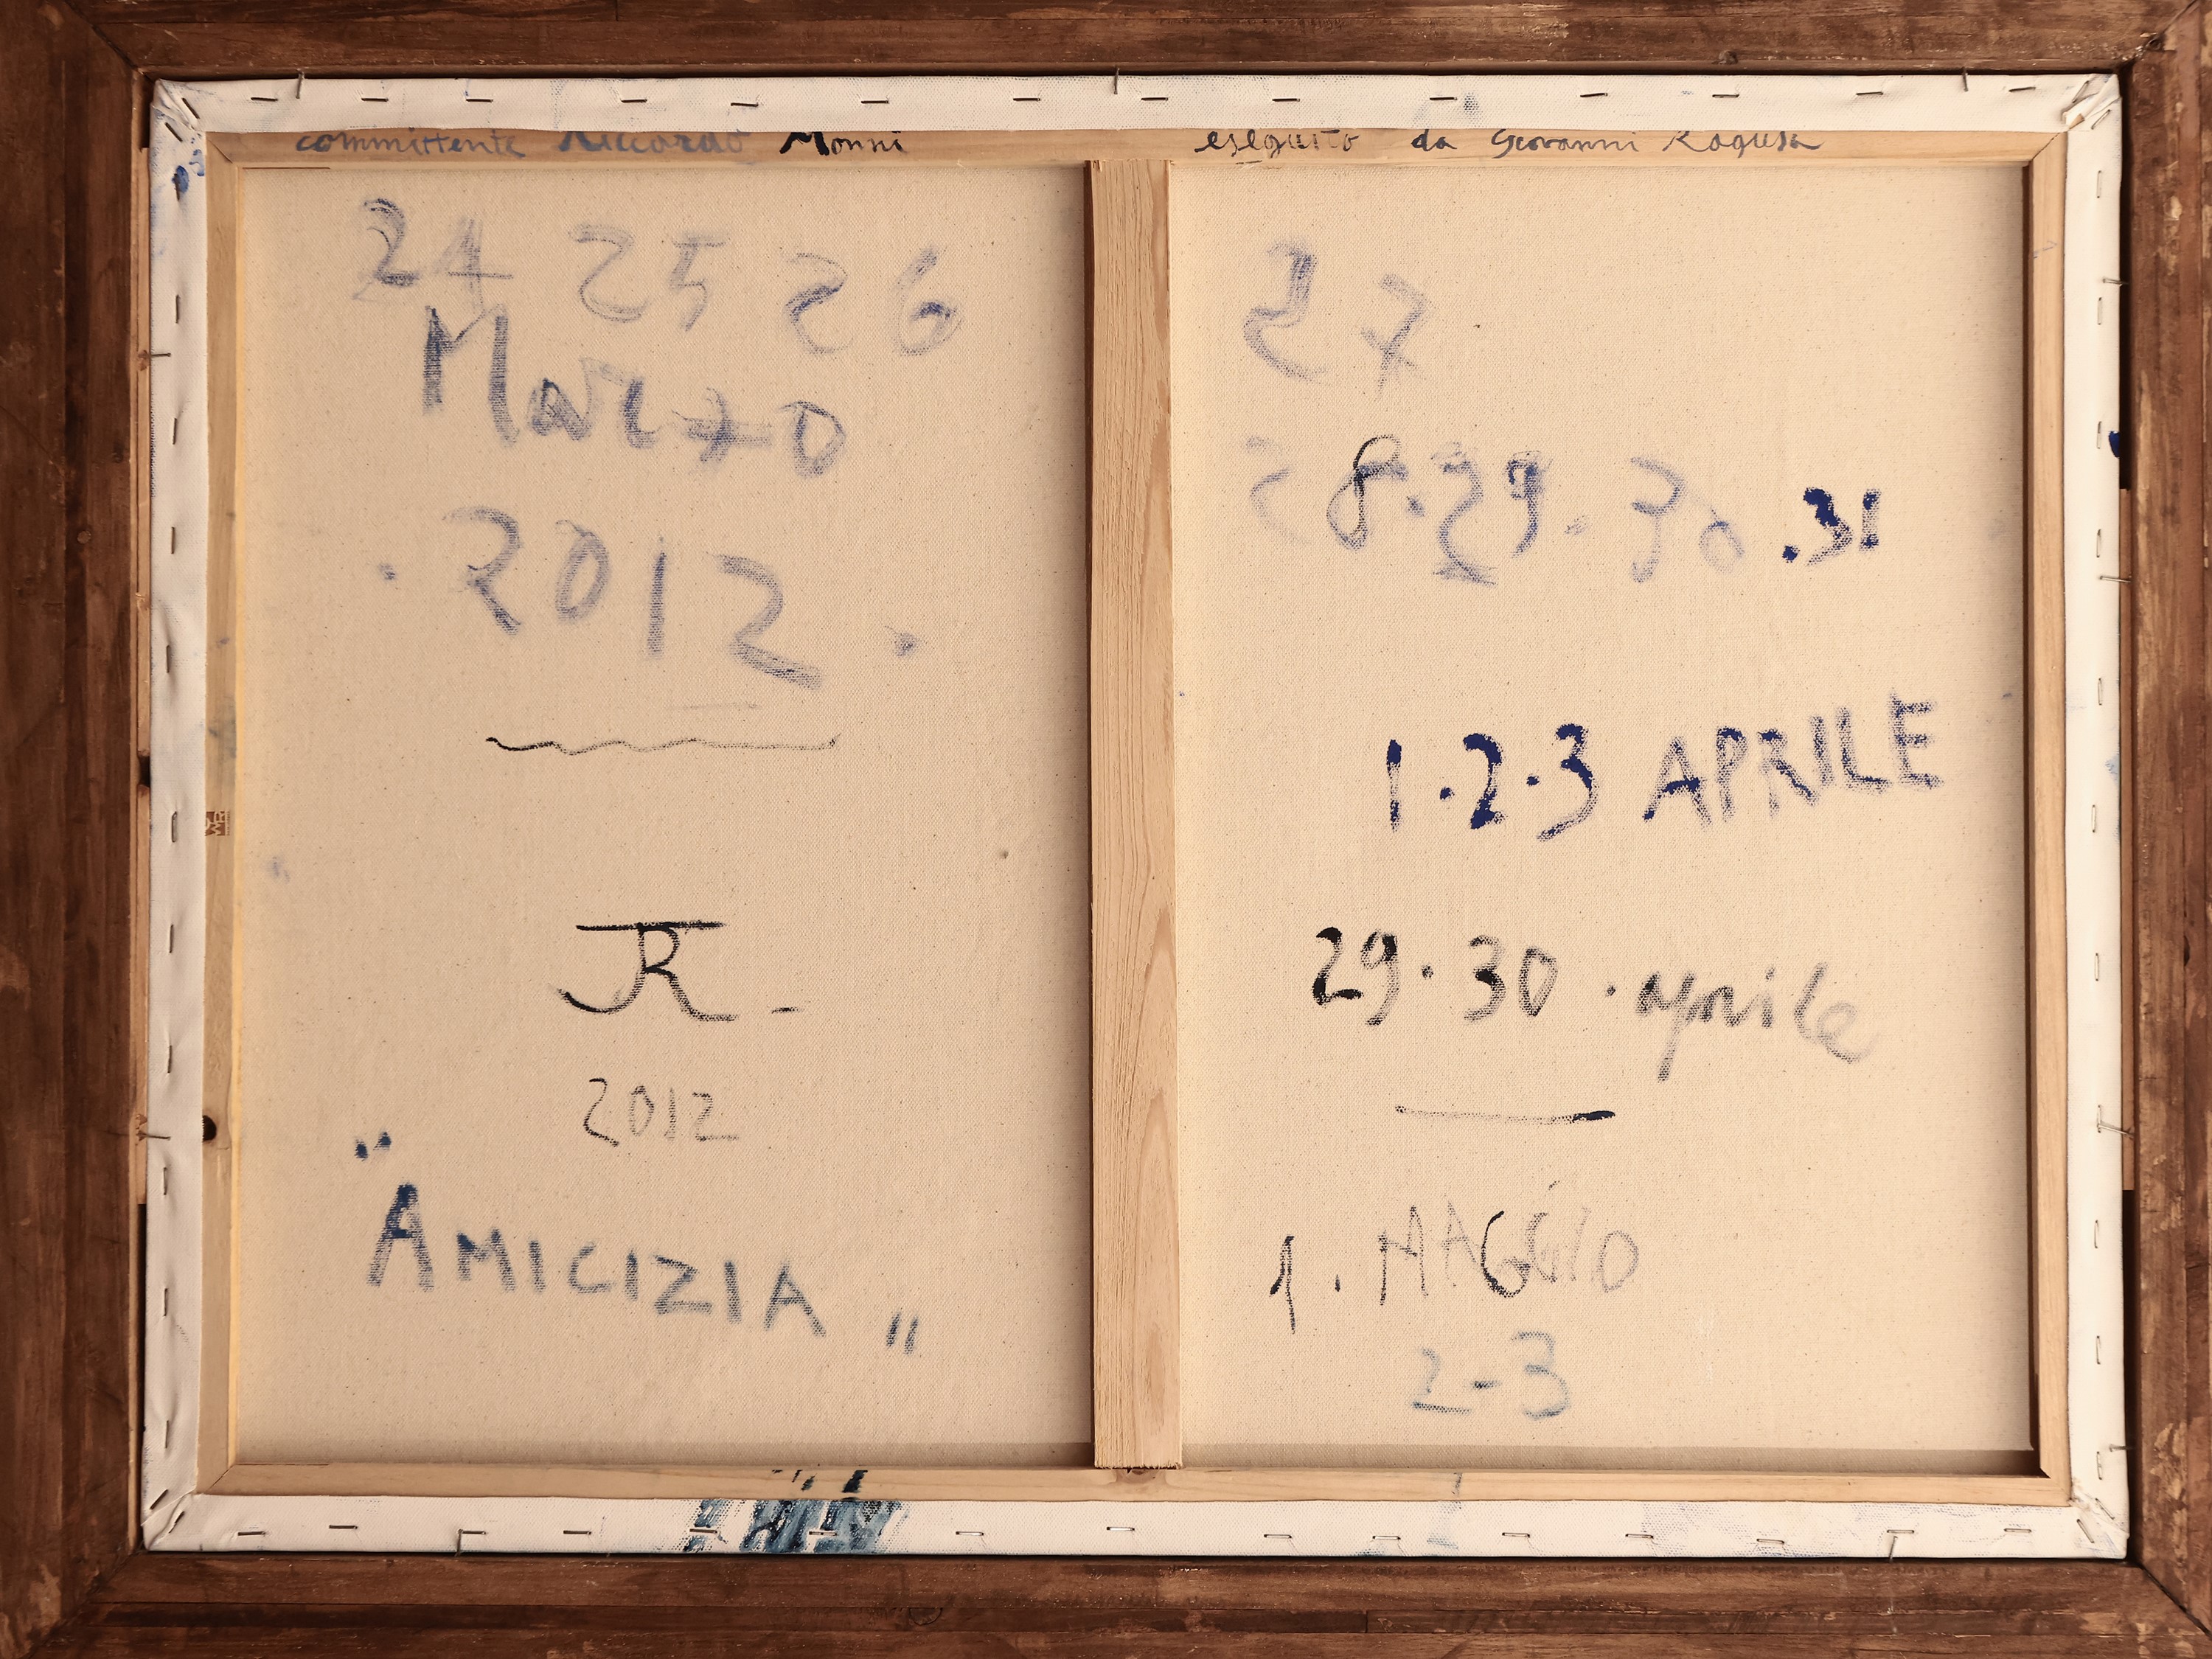 committente Riccardo Monni
eseguito da Giovanni Ragusa
24 25 26
Marzo
. 2012 .
JR -
2012
" AMICIZIA "
27
28 . 29 . 30 . 31
1 . 2 . 3 APRILE
29 . 30 . aprile
1 . MAGGIO
2 - 3